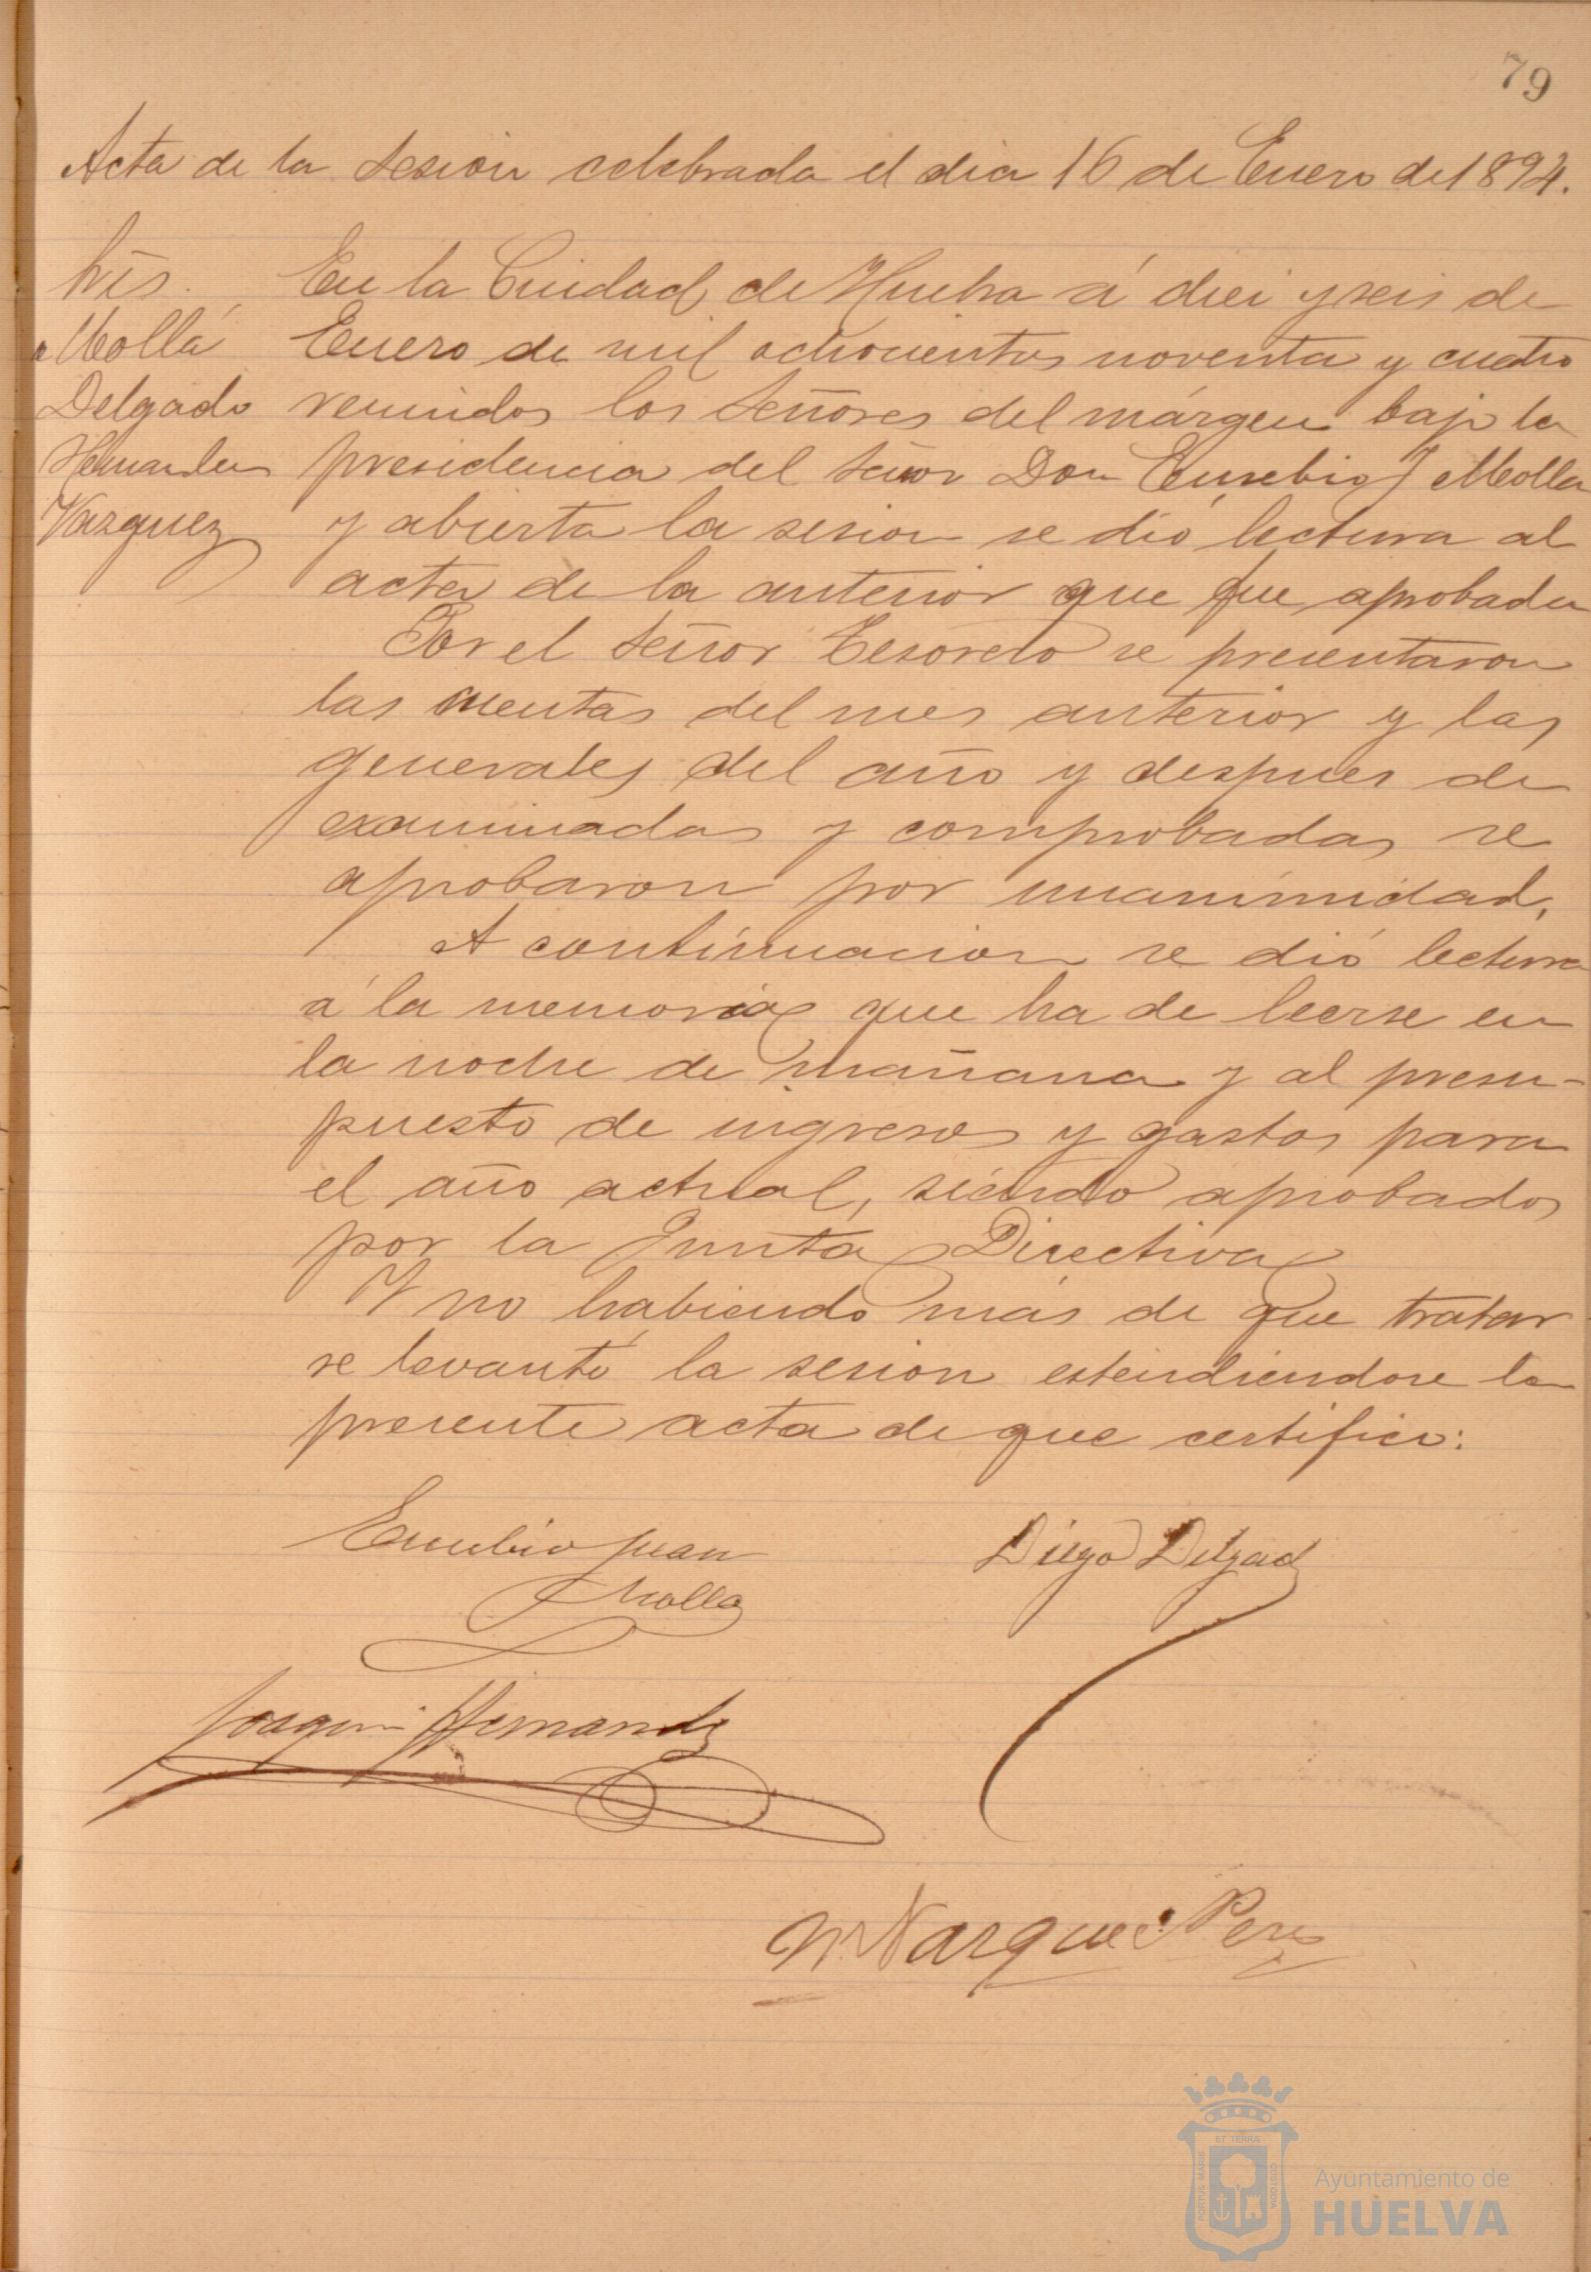 79
Acta de la sesion celebrada el dia 16 de Enero de 1894.
Mollá
Delgado
Hernandez
Vazquez
En la Ciudad de Huelva á diei y seis de
Enero de mil ochocientos noventa y cuatro
reunidos los Señores del márgen bajo la
presidencia del Señor Don Eusebio J Molla
y abierta la sesion se dió lectura al
acta de la anterior que fue aprobada
Por el Señor Tesorero se presentaron
las cuentas del mes anterior y las
generales del año y despues de
examinadas y comprobadas se
aprobaron por unanimidad.
A continuacion se dió lectura
á la memoria que ha de leerse en
la noche de mañana y al presu-
puesto de ingresos y gastos para
el año actual, siendo aprobados
por la Junta Directiva
Y no habiendo más de que tratar
se levantó la sesion estendiendose la
presente acta de que certifico:
Eusebio Juan
Molla
Diego Delgado
Joaquin Hernandez
M Vazquez Perez
PORTUS MARIS
ET TERRÆ
CUSTODIA
Ayuntamiento de
HUELVA